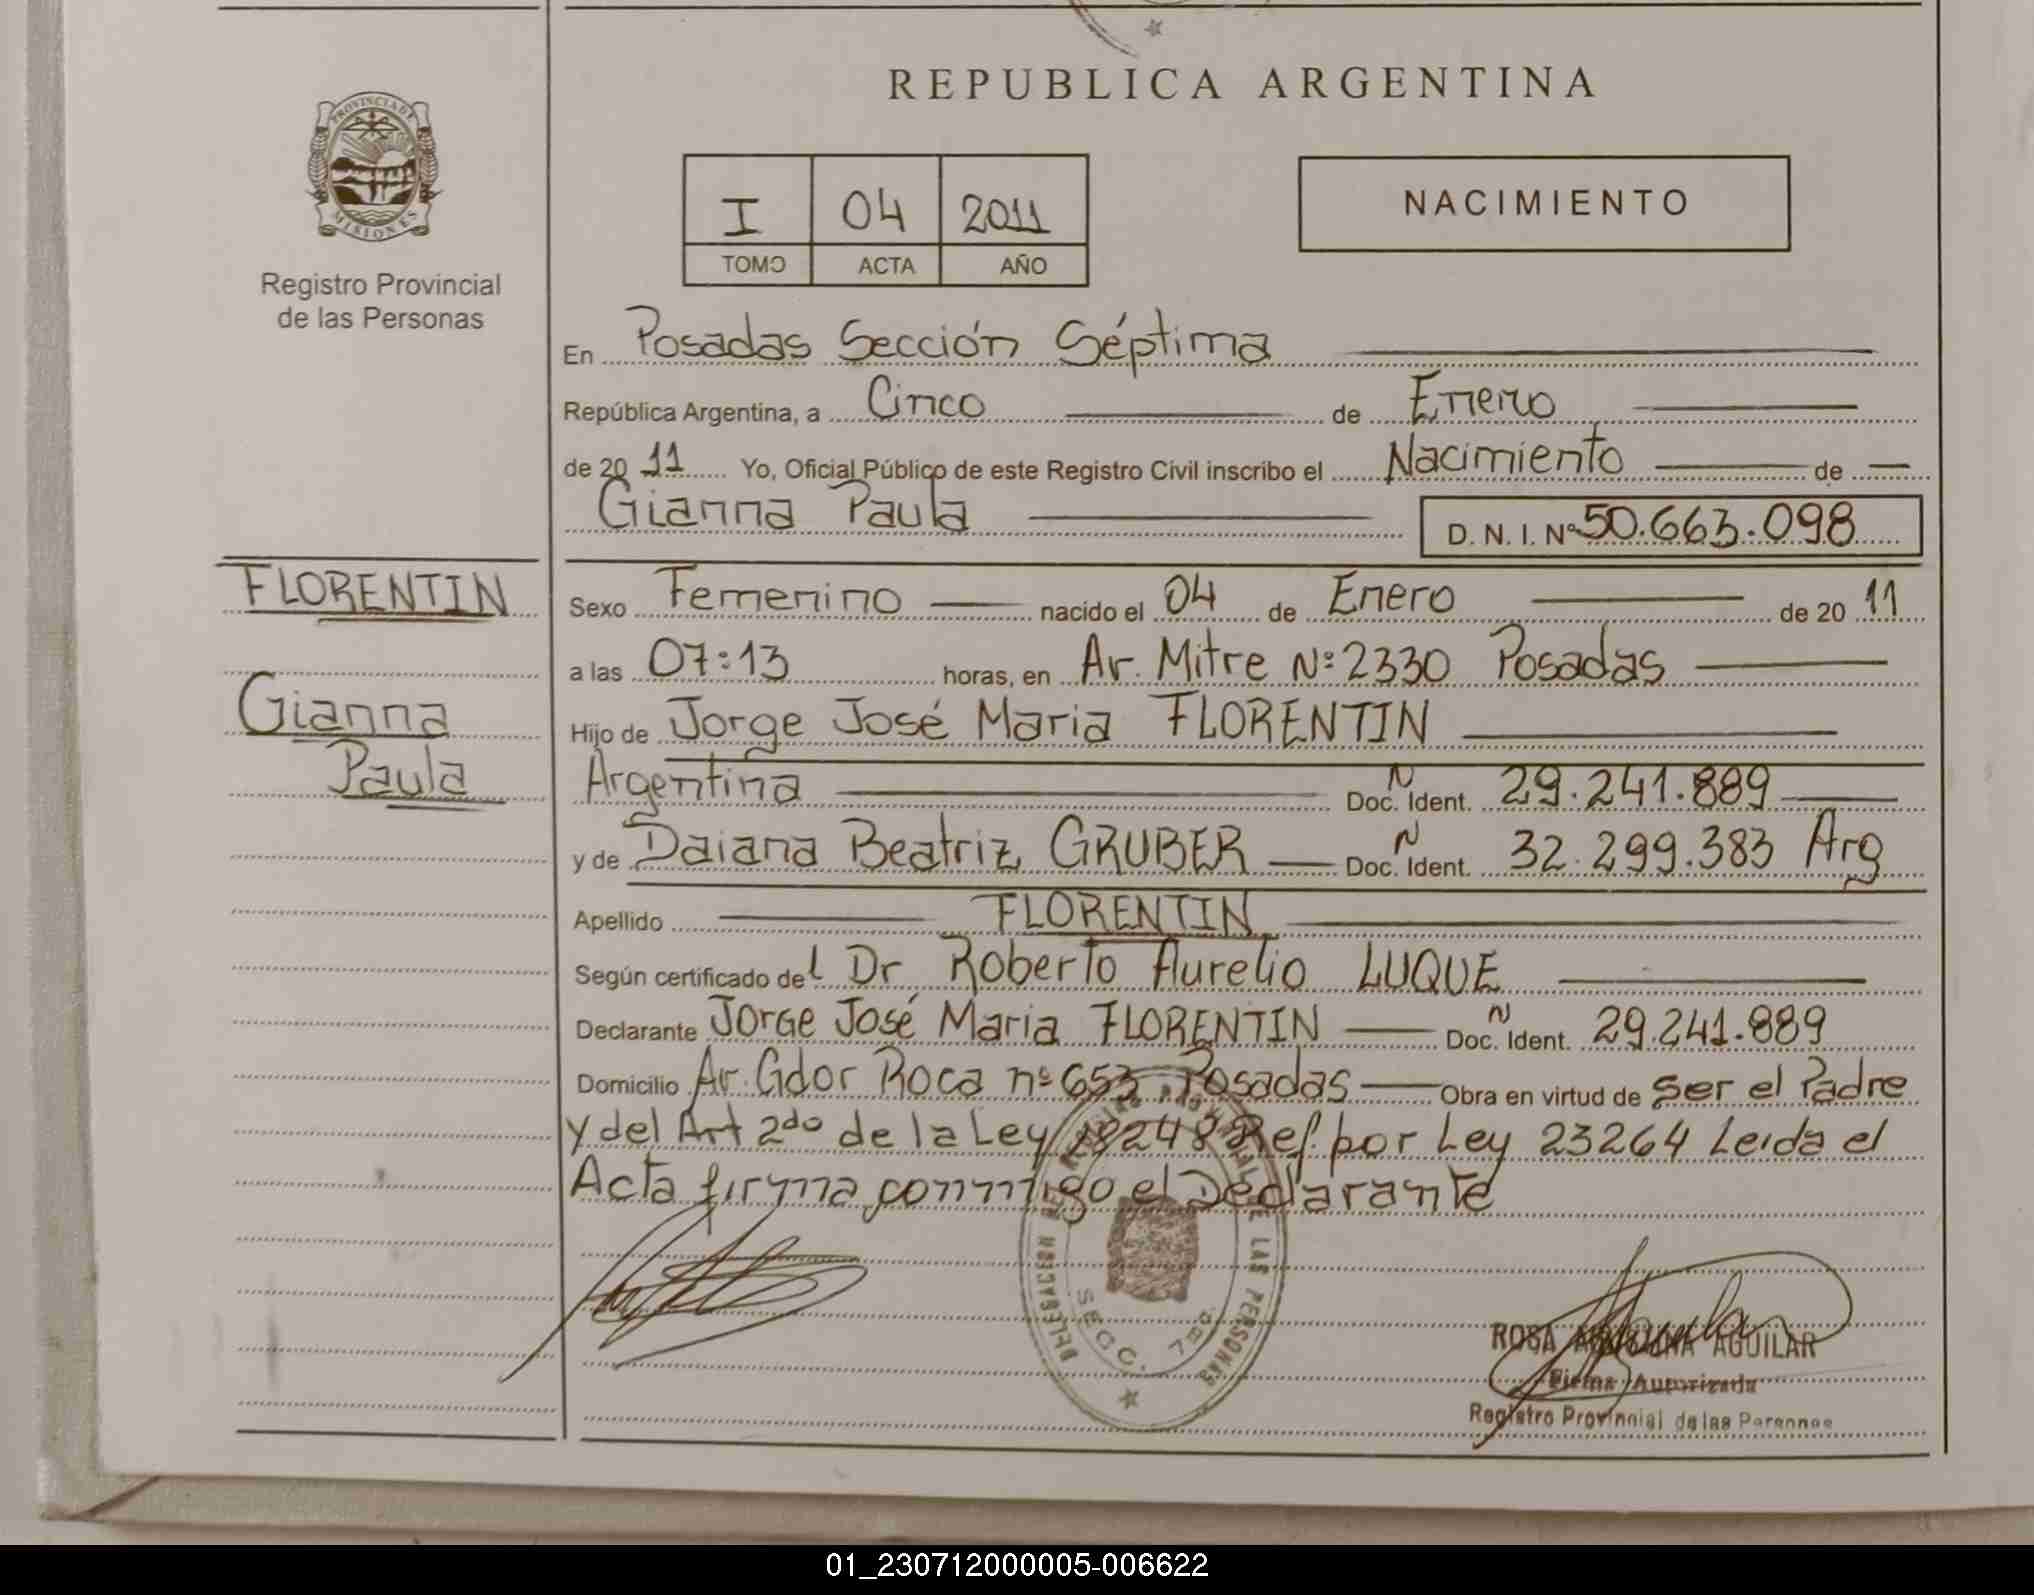 REPUBLICA ARGENTINA
PROVINCIA DE
MISIONES
Registro Provincial
de las Personas
I 04 2011
TOMO ACTA AÑO
NACIMIENTO
En Posadas Sección Séptima
República Argentina, a Cinco de Enero
de 2011 Yo, Oficial Público de este Registro Civil inscribo el Nacimiento de
Gianna Paula
D. N. I. Nº 50.663.098
FLORENTIN
Gianna
Paula
Sexo Femenino nacido el 04 de Enero de 2011
a las 07:13 horas, en Av. Mitre Nº 2330 Posadas
Hijo de Jorge José Maria FLORENTIN
Argentina Doc. Ident. 29.241.889
y de Daiana Beatriz GRUBER Doc. Ident. 32.299.383 Arg
Apellido FLORENTIN
Según certificado del Dr Roberto Aurelio LUQUE
Declarante Jorge José Maria FLORENTIN Doc. Ident. 29.241.889
Domicilio Av. Gdor Roca nº 653 Posadas Obra en virtud de ser el Padre
y del Art 2do de la Ley 18248 Ref. por Ley 23264 Leida el
Acta firma conmigo el Declarante
DELEGACION DEL REGISTRO PROVINCIAL DE LAS PERSONAS
SECC. 7ma.
ROSA AGUILAR
Firma Autorizada
Registro Provincial de las Personas
01_230712000005-006622